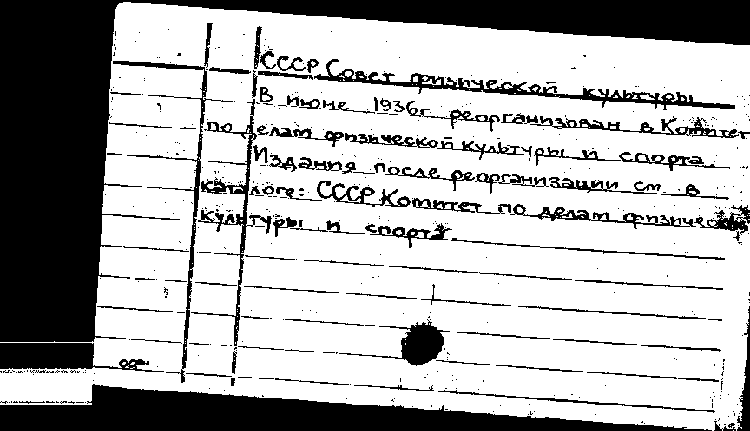 СССР Совет физической культуры
В июне 1936г реорганизован в Комитет
по делам физической культуры и спорта.
Издания после реорганизации см. в
каталоге: СССР Комитет по делам физической
культуры и спорта.